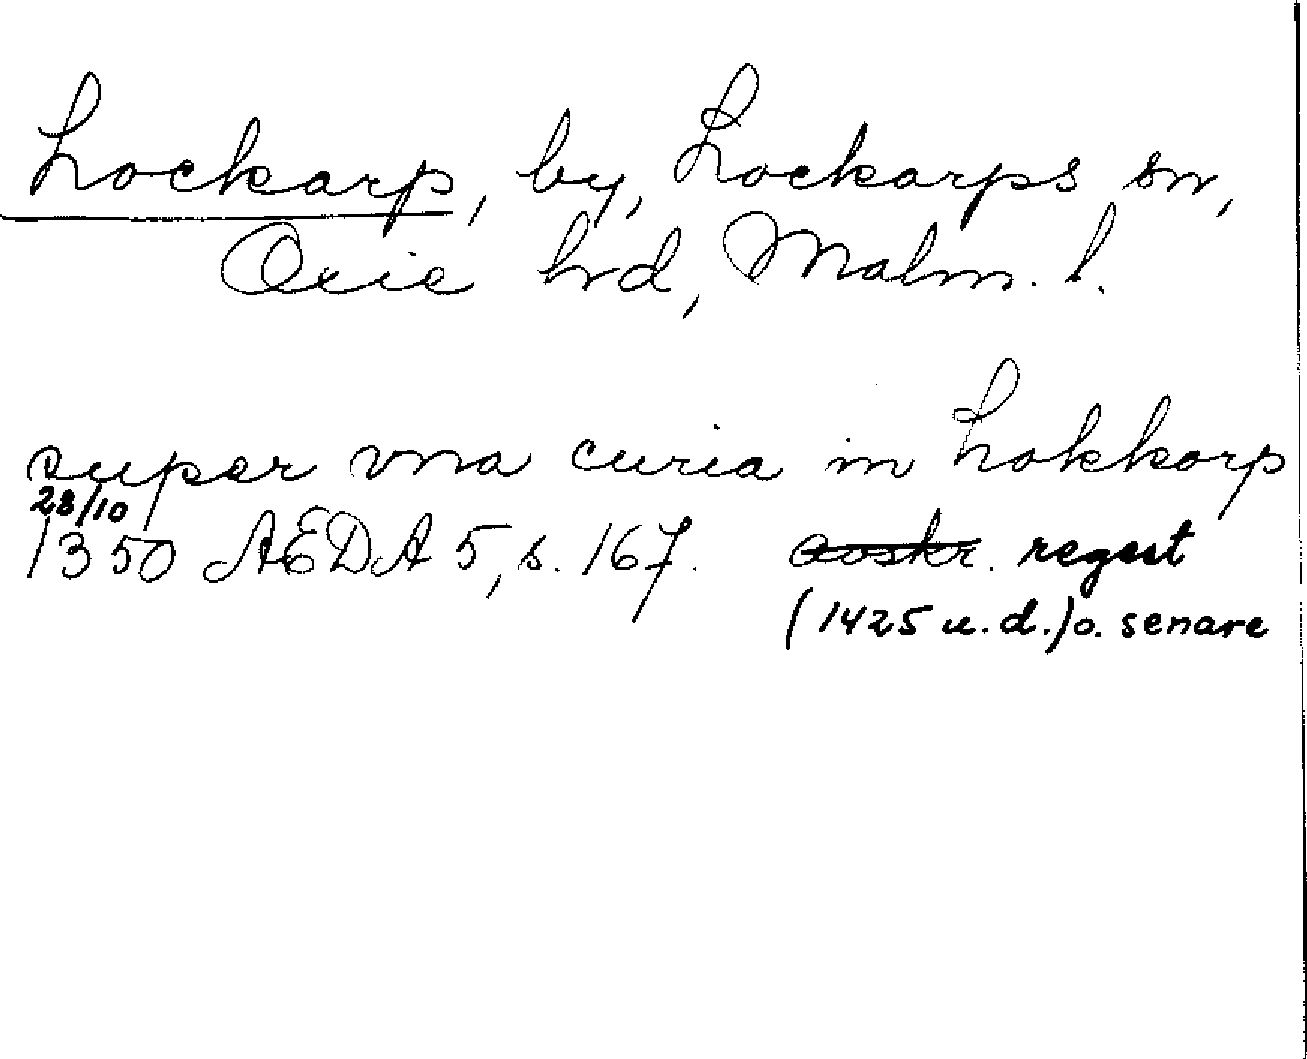 Lockarp, by, Lockarps sn,
Oxie hd, Malm. l.
super vna curia in Lokkorp
28/10
1350 AEDA 5, s. 167. avskr. regest
(1425 u. d.) o. senare